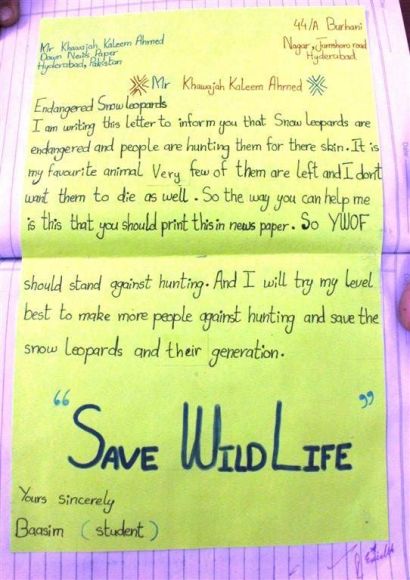 44/A Burhani
Nagar, Jamshoro road
Hyderabad
Mr Khawajah Kaleem Ahmed
Dawn News Paper
Hyderabad, Pakistan
Mr Khawajah Kaleem Ahmed
Endangered Snow leopards
I am writing this letter to inform you that Snow leopards are
endangered and people are hunting them for there skin. It is
my favourite animal Very few of them are left and I don't
want them to die as well. So the way you can help me
is this that you should print this in news paper. So YWOF
should stand against hunting. And I will try my level
best to make more people against hunting and save the
snow leopards and their generation.
“SAVE WILD LIFE”
Yours sincerely
Baasim (student)